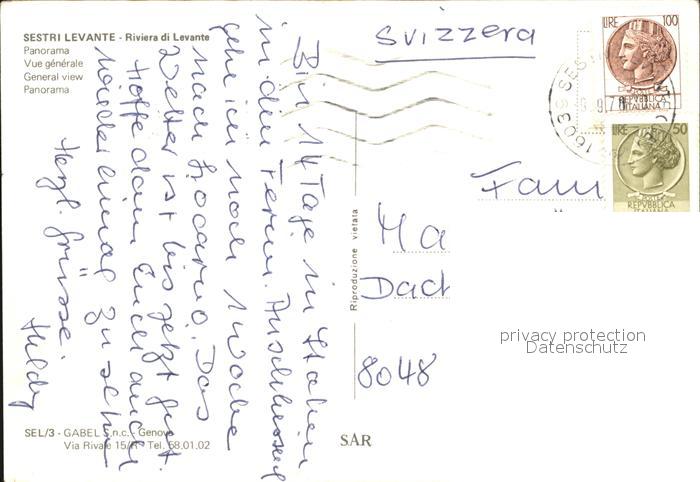 SESTRI LEVANTE - Riviera di Levante
Panorama
Vue générale
General view
Panorama
Bin 14 Tage in Italien
in den Ferien. Anschliessend
gehe ich noch 1 Woche
nach Locarno. Das
Wetter ist bis jetzt gut.
Hoffe dann Euch auch
wieder einmal zu sehen
Herzl. Grüsse
SEL/3 - GABEL S.n.c. - Genova
Via Rivale 15/R - Tel. 58.01.02
Riproduzione vietata
SAR
Svizzera
LIRE 100
REPVBBLICA
ITALIANA
LIRE 50
REPVBBLICA
ITALIANA
Fam
Ma
Dach
8048
privacy protection
Datenschutz